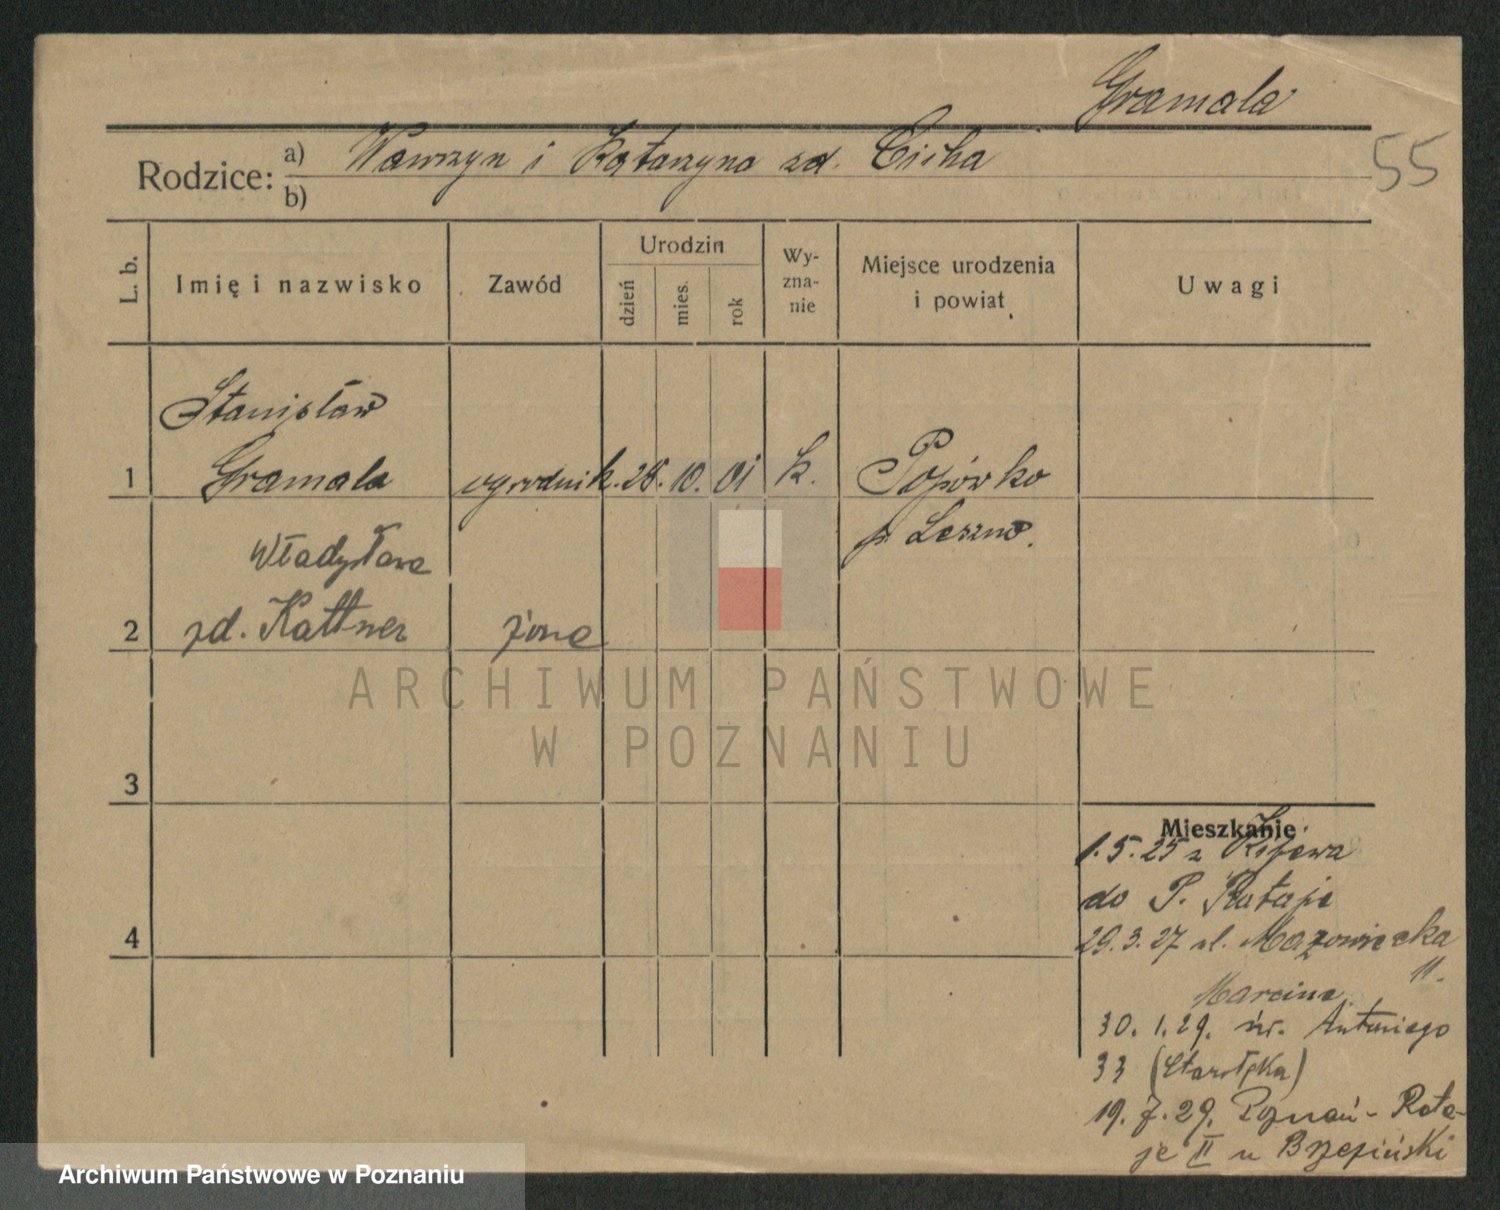 Gramala
55
Rodzice: a) Wawrzyn i Katarzyna zd. Cicha
b)
L. b. Imię i nazwisko Zawód Urodzin dzień mies. rok Wy-zna-nie Miejsce urodzenia i powiat Uwagi
Stanisław
1 Gramala ogrodnik. 28. 10. 01 k. Popówko
p. Leszno.
Władysława
2 zd. Kattner żona
ARCHIWUM PAŃSTWOWE
W POZNANIU
3
Mieszkanie
1.5.25 z
do P. Rataje
4
29.3.27 ul. Mazowiecka
11.
Marcina
30. 1. 29. św. Antoniego
33 (Starołęka)
19. 7. 29. Poznań - Rata-
je II u Brzeziński
Archiwum Państwowe w Poznaniu